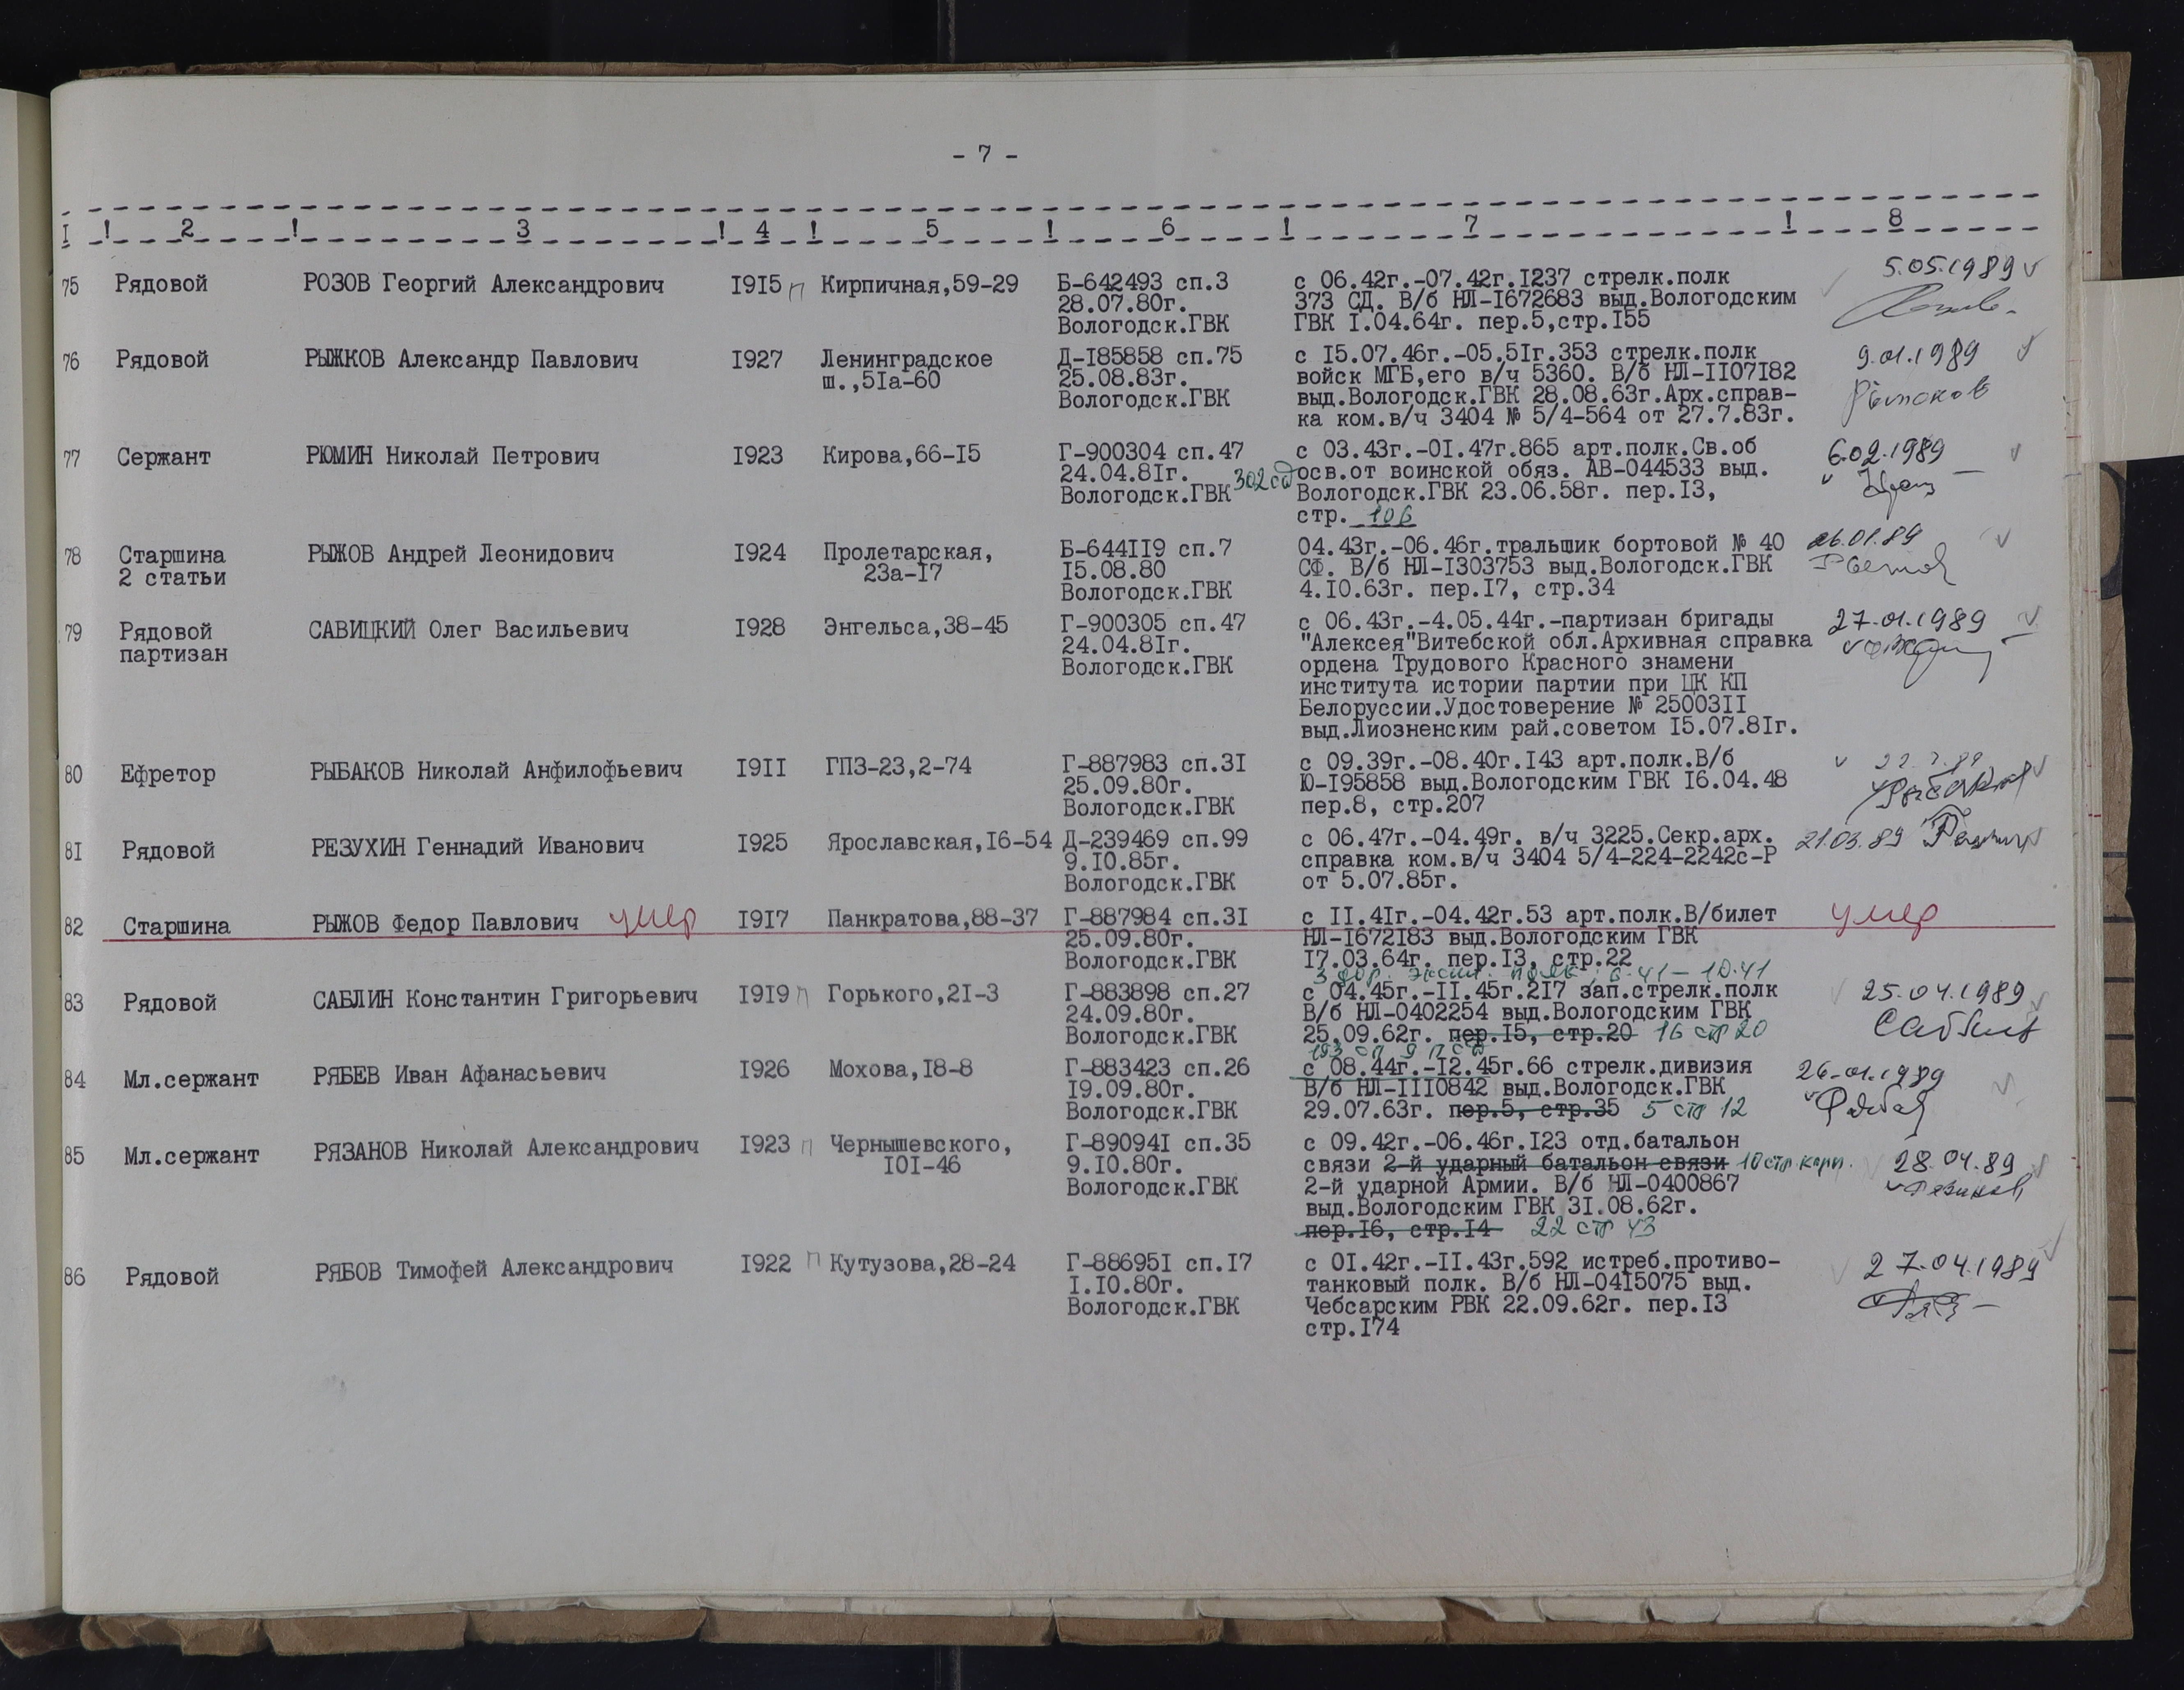 - 7 -
I ! 2 ! 3 ! 4 ! 5 ! 6 ! 7 ! 8
75 Рядовой РОЗОВ Георгий Александрович I9I5 п Кирпичная,59-29 Б-642493 сп.3 с 06.42г.-07.42г.I237 стрелк.полк 5.05.1989
28.07.80г. 373 СД. В/б НЛ-I672683 выд.Вологодским
Вологодск.ГВК ГВК I.04.64г. пер.5,стр.I55
76 Рядовой РЫЖКОВ Александр Павлович I927 Ленинградское Д-I85858 сп.75 с I5.07.46г.-05.5Iг.353 стрелк.полк 9.01.1989
ш.,5Iа-60 25.08.83г. войск МГБ,его в/ч 5360. В/б НЛ-II07I82
Вологодск.ГВК выд.Вологодск.ГВК 28.08.63г.Арх.справ- Рыжков
ка ком.в/ч 3404 № 5/4-564 от 27.7.83г.
77 Сержант РЮМИН Николай Петрович I923 Кирова,66-I5 Г-900304 сп.47 с 03.43г.-0I.47г.865 арт.полк.Св.об 6.02.1989
24.04.8Iг. 302 сд осв.от воинской обяз. АВ-044533 выд.
Вологодск.ГВК Вологодск.ГВК 23.06.58г. пер.I3,
стр. 106
78 Старшина РЫЖОВ Андрей Леонидович I924 Пролетарская, Б-644II9 сп.7 04.43г.-06.46г.тральщик бортовой № 40 26.01.89
2 статьи 23а-I7 I5.08.80 СФ. В/б НЛ-I303753 выд.Вологодск.ГВК
Вологодск.ГВК 4.I0.63г. пер.I7, стр.34
79 Рядовой САВИЦКИЙ Олег Васильевич I928 Энгельса,38-45 Г-900305 сп.47 с 06.43г.-4.05.44г.-партизан бригады 27.01.1989
партизан 24.04.8Iг. "Алексея"Витебской обл.Архивная справка
Вологодск.ГВК ордена Трудового Красного знамени
института истории партии при ЦК КП
Белоруссии.Удостоверение № 25003II
выд.Лиозненским рай.советом I5.07.8Iг.
80 Ефретор РЫБАКОВ Николай Анфилофьевич I9II ГПЗ-23,2-74 Г-887983 сп.3I с 09.39г.-08.40г.I43 арт.полк.В/б
25.09.80г. Ю-I95858 выд.Вологодским ГВК I6.04.48 Рыбаков
Вологодск.ГВК пер.8, стр.207
8I Рядовой РЕЗУХИН Геннадий Иванович I925 Ярославская,I6-54 Д-239469 сп.99 с 06.47г.-04.49г. в/ч 3225.Секр.арх. 21.03.89
9.I0.85г. справка ком.в/ч 3404 5/4-224-2242с-Р
Вологодск.ГВК от 5.07.85г.
82 Старшина РЫЖОВ Федор Павлович умер I9I7 Панкратова,88-37 Г-887984 сп.3I с II.4Iг.-04.42г.53 арт.полк.В/билет умер
25.09.80г. НЛ-I672I83 выд.Вологодским ГВК
Вологодск.ГВК I7.03.64г. пер.I3, стр.22
3 дор. экспл. полк, 6.41-10.41
83 Рядовой САБЛИН Константин Григорьевич I9I9 п Горького,2I-3 Г-883898 сп.27 с 04.45г.-II.45г.2I7 зап.стрелк.полк 25.04.1989
24.09.80г. В/б НЛ-0402254 выд.Вологодским ГВК Саблин
Вологодск.ГВК 25.09.62г. пер.I5, стр.20 16 стр 20
193 сп
84 Мл.сержант РЯБЕВ Иван Афанасьевич I926 Мохова,I8-8 Г-883423 сп.26 с 08.44г.-I2.45г.66 стрелк.дивизия 26.01.1989
I9.09.80г. В/б НЛ-III0842 выд.Вологодск.ГВК
Вологодск.ГВК 29.07.63г. пер.5, стр.35 5 стр 12
85 Мл.сержант РЯЗАНОВ Николай Александрович I923 п Чернышевского, Г-89094I сп.35 с 09.42г.-06.46г.I23 отд.батальон
I0I-46 9.I0.80г. связи 2-й ударный батальон связи 10 стр.корп. 28.04.89
Вологодск.ГВК 2-й ударной Армии. В/б НЛ-0400867
выд.Вологодским ГВК 3I.08.62г.
пер.I6, стр.I4 22 стр 43
86 Рядовой РЯБОВ Тимофей Александрович I922 п Кутузова,28-24 Г-88695I сп.I7 с 0I.42г.-II.43г.592 истреб.противо- 27.04.1989
I.I0.80г. танковый полк. В/б НЛ-04I5075 выд.
Вологодск.ГВК Чебсарским РВК 22.09.62г. пер.I3
стр.I74